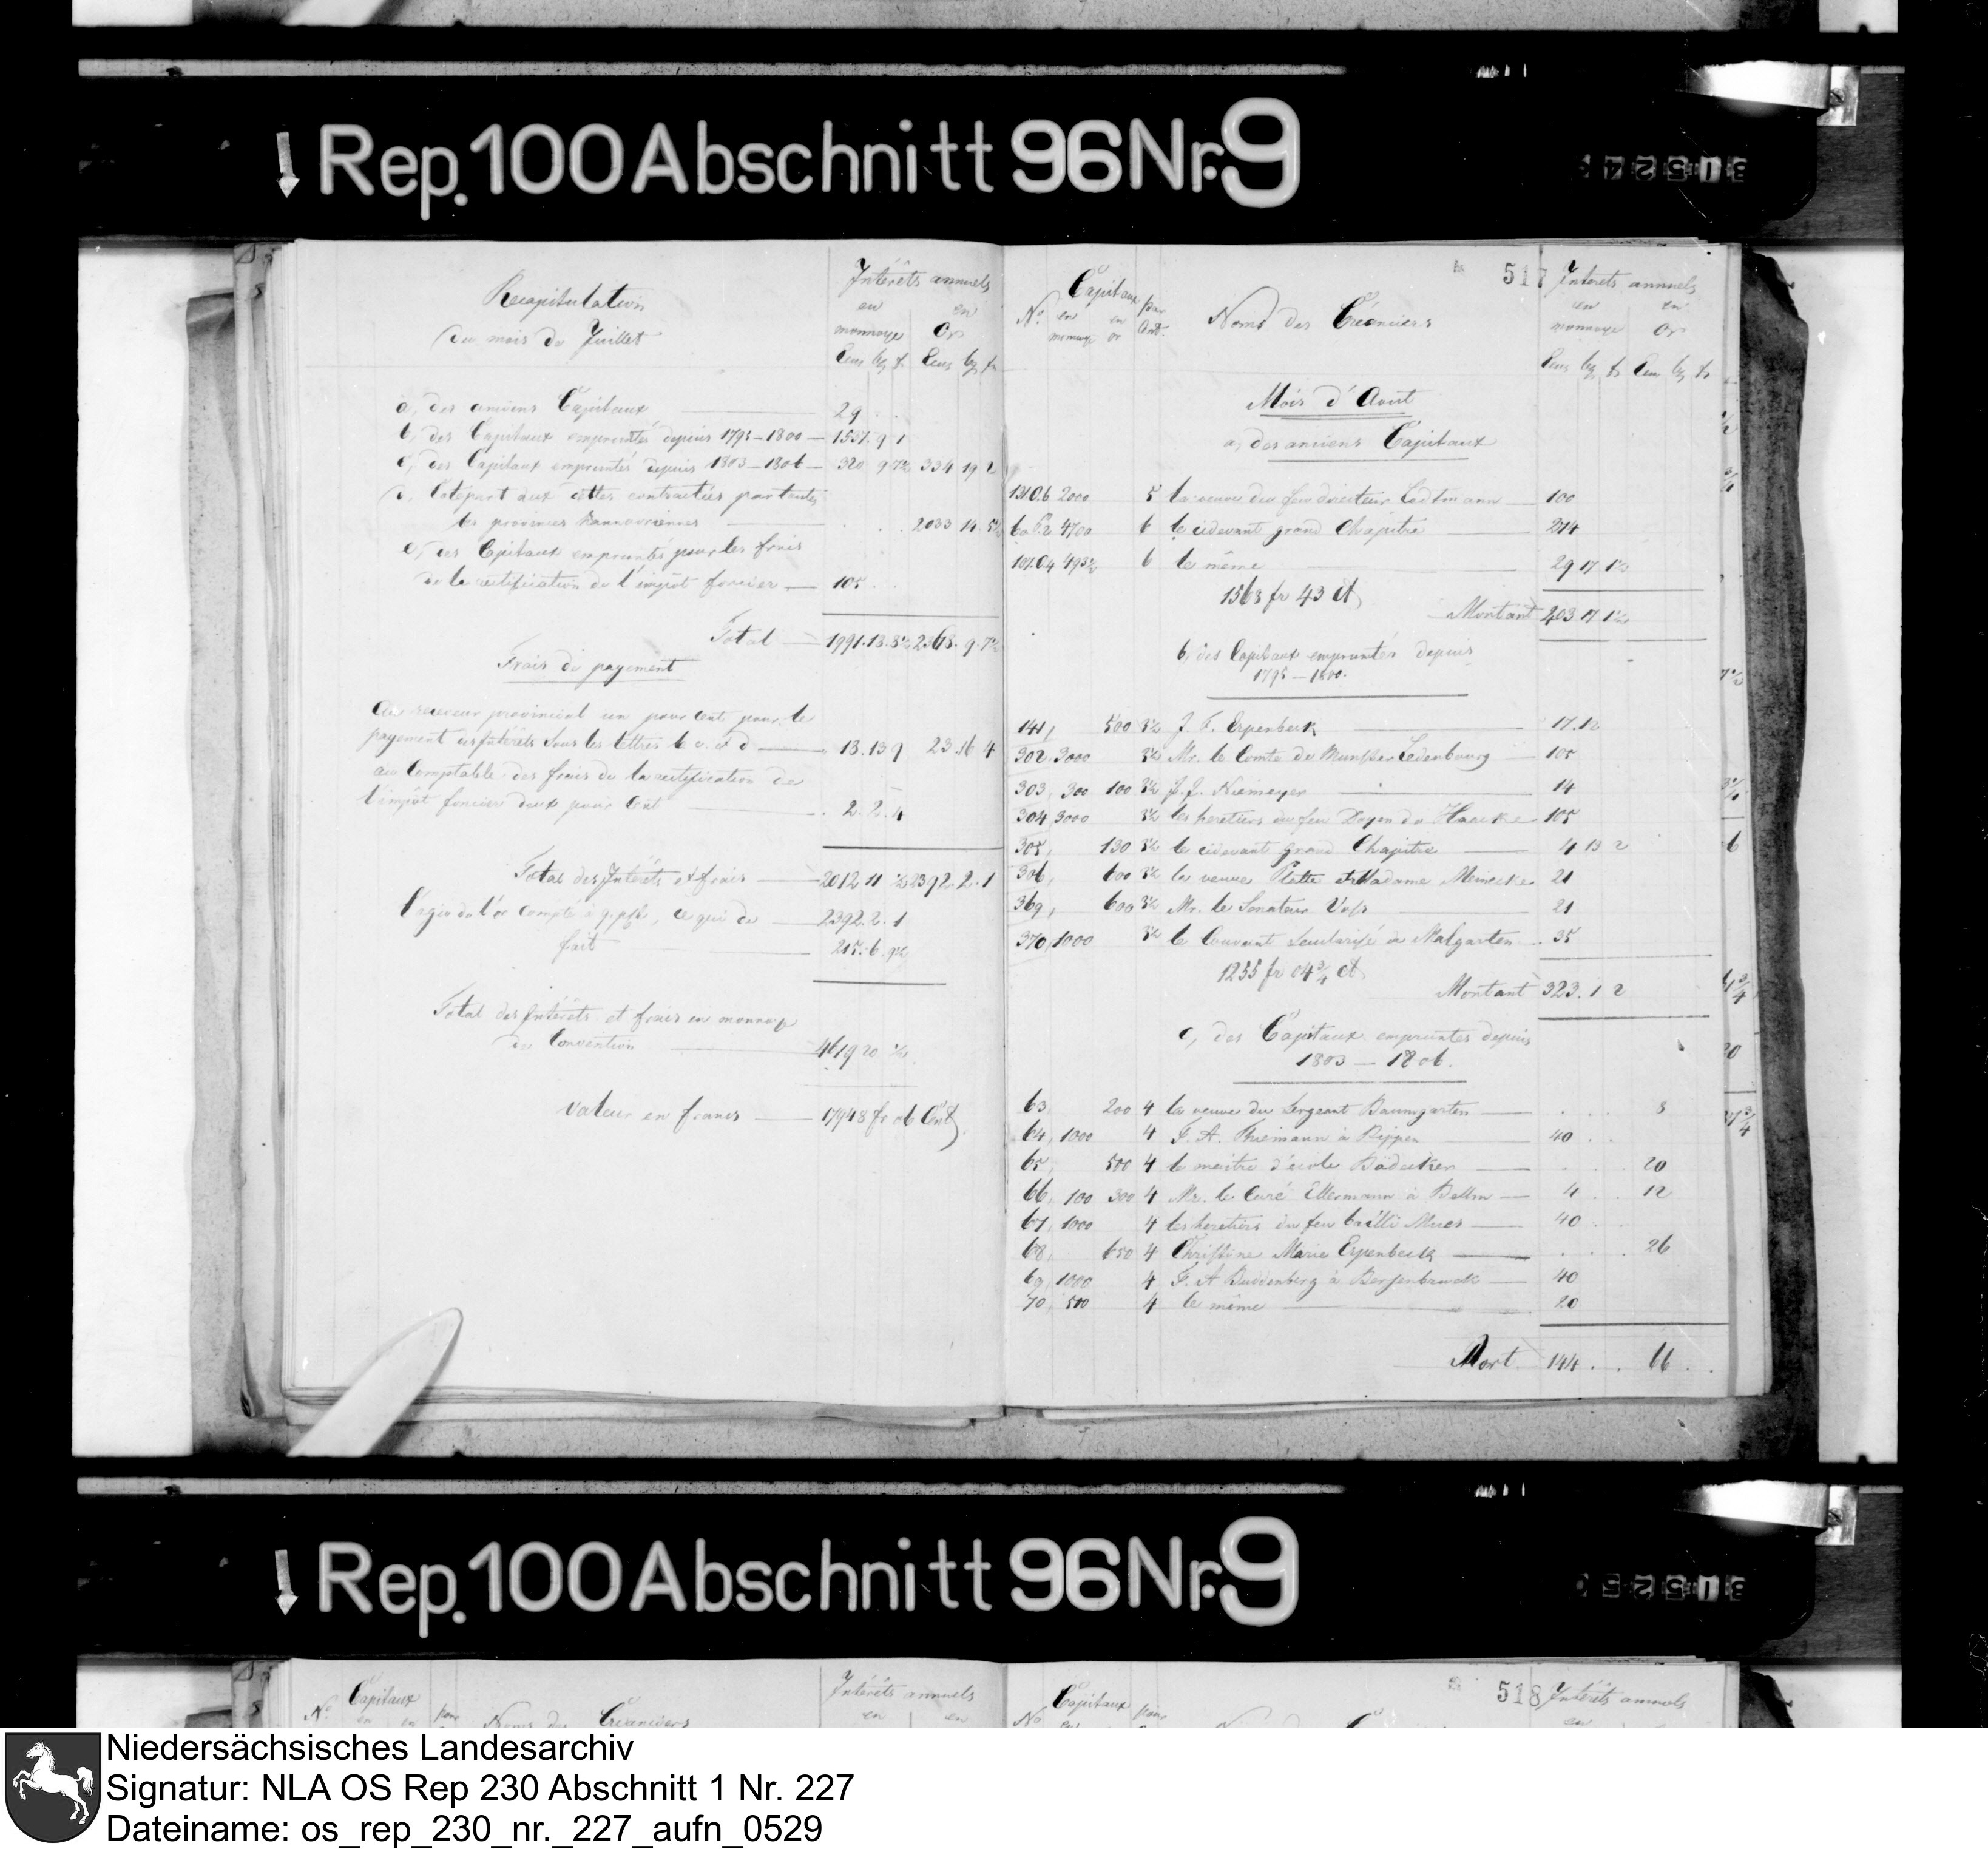 Rep. 100 Abschnitt 96 Nr. 9
31524
Recapitulation
du mois de Juillet
Intérêts annuels
en en
monnoye Or
Ecus bg fr Ecus bg fr
a, des anciens Capitaux 29
b, des Capitaux empruntés depuis 1795–1800 1537. 9 1
c, des Capitaux empruntés depuis 1803–1806 320 9 7½ 334 19 2
les provinces hannovriennes 2033 14 5½
e, des Capitaux empruntés pour les frais
de la rectification de l'impôt foncier 105
Total 1991. 18. 8½ 2368. 9. 7½
Frais de payement
Au receveur provincial un pour Cent pour le
payement des Intérêts sous les lettres b c. et d 13. 13 9 23. 16 4
au Comptable des frais de la rectification de
l'impôt foncier deux pour Cent 2. 2. 4
Total des Intérêts et frais 2012. 11 ½ 2392. 2. 1
l'agio de l'or compté à 9 pC, ce qui de 2392. 2. 1
fait 215. 6. 9½
Total des Intérêts et frais en monnoye
de Convention 4619 20 ½
Valeur en francs 17948 fr 06 Cent
517
No. Capitaux en monnoye en or pour Cent. Noms des Créanciers Interets annuels
en en
monnoye Or
Ecus bg fr Ecus bg fr
Mois d'Août
a, des anciens Capitaux
2000 5 la veuve du feu directeur Ledtmann 100
4700 6 le cidevant grand Chapitre 274
6 le même 29 17 1½
1563 fr 43 Ct
Montant 403. 17 1½
b, des Capitaux empruntés depuis
1795 – 1800.
141, 500 3½ J. F. Erpenbeck 17. 12
302, 3000 3½ Mr. le Comte de Munster Ledenbourg 105
303, 300 100 3½ J. J. Niemeyer 14
304, 3000 3½ les heretiers du feu Doyen de Haecke 105
305, 130 3½ le cidevant grand Chapitre 4 13 2
306, 600 3½ la veuve Plette et Madame Meinecke 21
369, 600 3½ Mr. le Senateur Voss 21
370, 1000 3½ le Couvent secularisé à Malgarten 35
1255 fr 04¾ Ct
Montant 323. 1 2
c, des Capitaux empruntes depuis
1803 – 1806.
63, 200 4 la veuve du Sergeant Baumgarten 8
64, 1000 4 F. A. Thiemann à Rippen 40
65, 500 4 le maitre d'école Bädecker 20
66, 100 300 4 Mr. le Curé Ellermann à Bellm 4 12
67, 1000 4 les heretiers du feu Mues 40
68, 650 4 Christine Marie Erpenbeck 26
69, 1000 4 F. A Buddenberg à Bersenbruck 40
70, 500 4 le même 20
Mont 144 66
Rep. 100 Abschnitt 96 Nr. 9
31525
No. Capitaux en en pour Noms des Créanciers Intérêts annuels
en en
No Capitaux pour 518 Intérêts annuels
Niedersächsisches Landesarchiv
Signatur: NLA OS Rep 230 Abschnitt 1 Nr. 227
Dateiname: os_rep_230_nr._227_aufn_0529